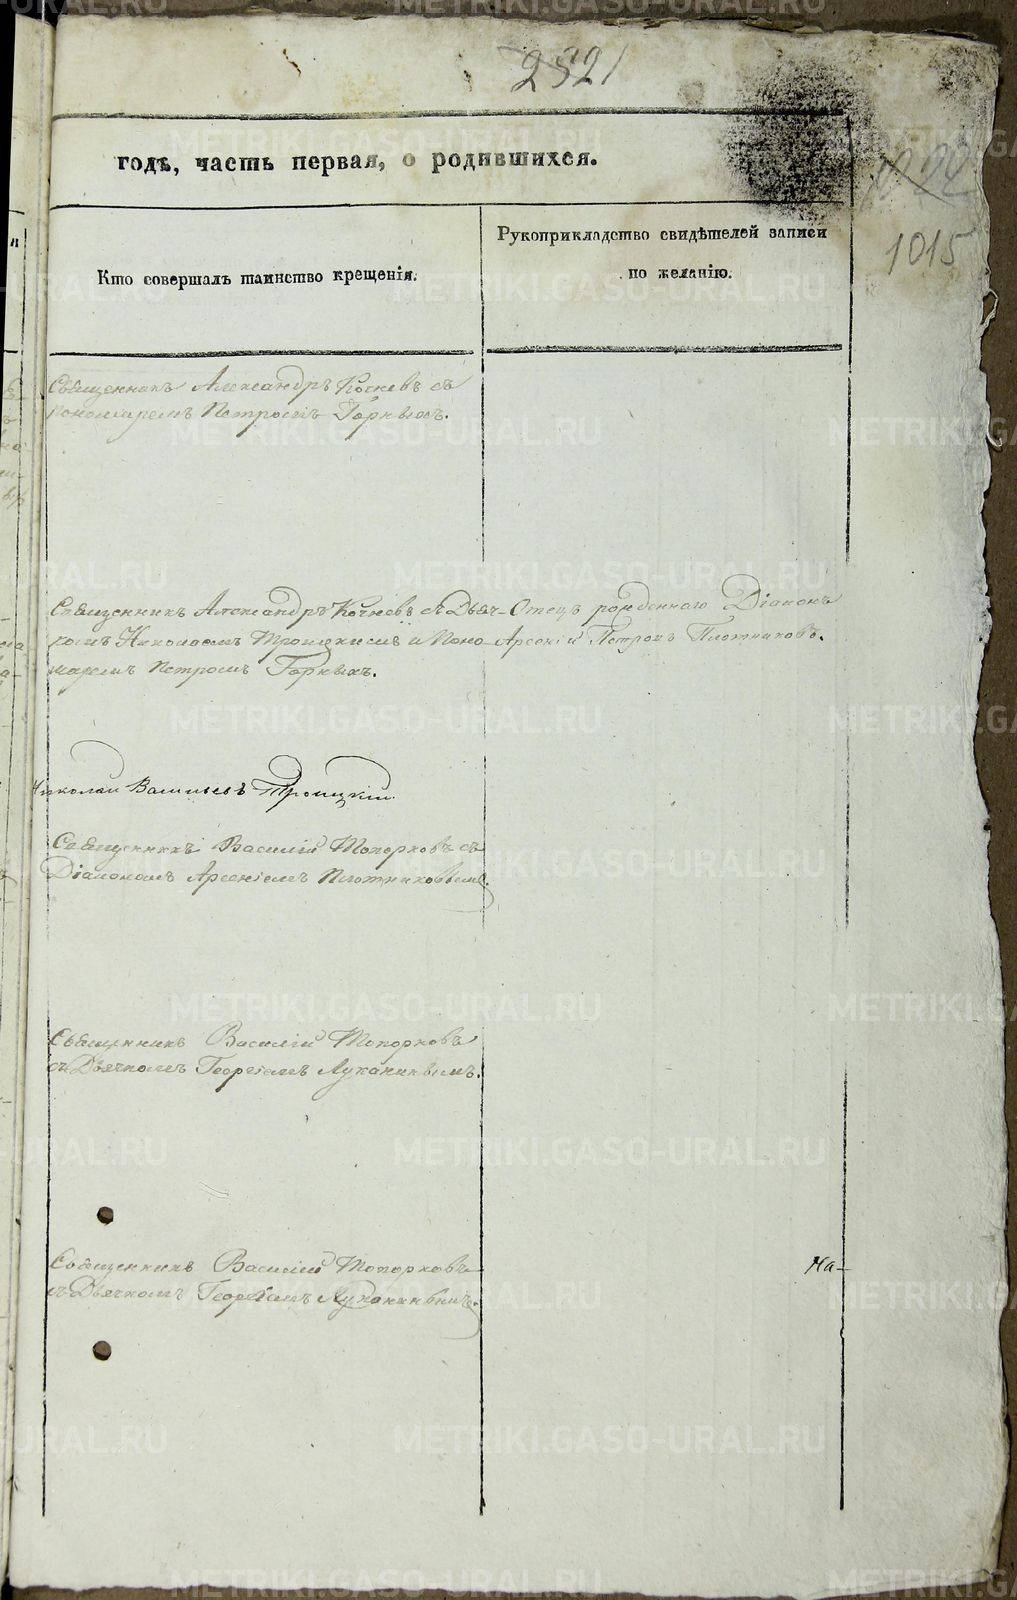 2321
1092
1015
годъ, часть первая, о родившихся.
Кто совершалъ таинство крещенія.
Рукоприкладство свидѣтелей записи
по желанію.
Священникъ Александръ Кочневъ съ
пономаремъ Петромъ Горныхъ.
Священникъ Александръ Кочневъ с Дьяч-
комъ Николаемъ Троицкимъ и Поно-
маремъ Петромъ Горныхъ.
Отецъ рожденнаго Діаконъ
Арсеній Петровъ Плотниковъ.
Николай Васильевъ Троицкій.
Священникъ Василій Топорковъ съ
Діакономъ Арсеніемъ Плотниковымъ.
Священникъ Василій Топорковъ
съ Дьячкомъ Георгіемъ Луканинымъ.
Священникъ Василій Топорковъ
съ Дьячкомъ Георгіемъ Луканинымъ.
На-
METRIKI.GASO-URAL.RU